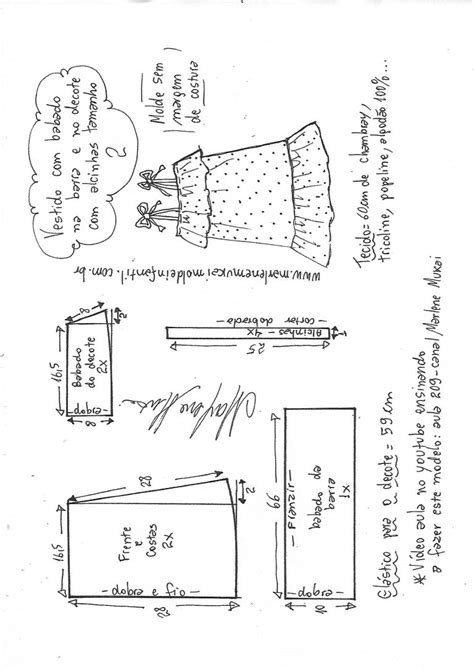 Vestido com babado
na barra e no decote
com alcinhas tamanho
2
Molde sem
margem
de costura
www.marlenemukai.moldeinfantil.com.br
Tecido = 60cm de chambray,
tricoline, popeline, algodão 100%...
16,5
2
8
- dobra -
Babado
do decote
2x
25
Alcinhas - 4x
- cortar dobrada -
Marlene Mukai
16,5
28
2
28
- dobra e fio -
Frente
e
Costas
2x
- Franzir -
babado da
barra
1x
- dobra -
10
Elástico para o decote = 59cm
* Vídeo aula no youtube ensinando
a fazer este modelo: aula 209-canal/Marlene Mukai